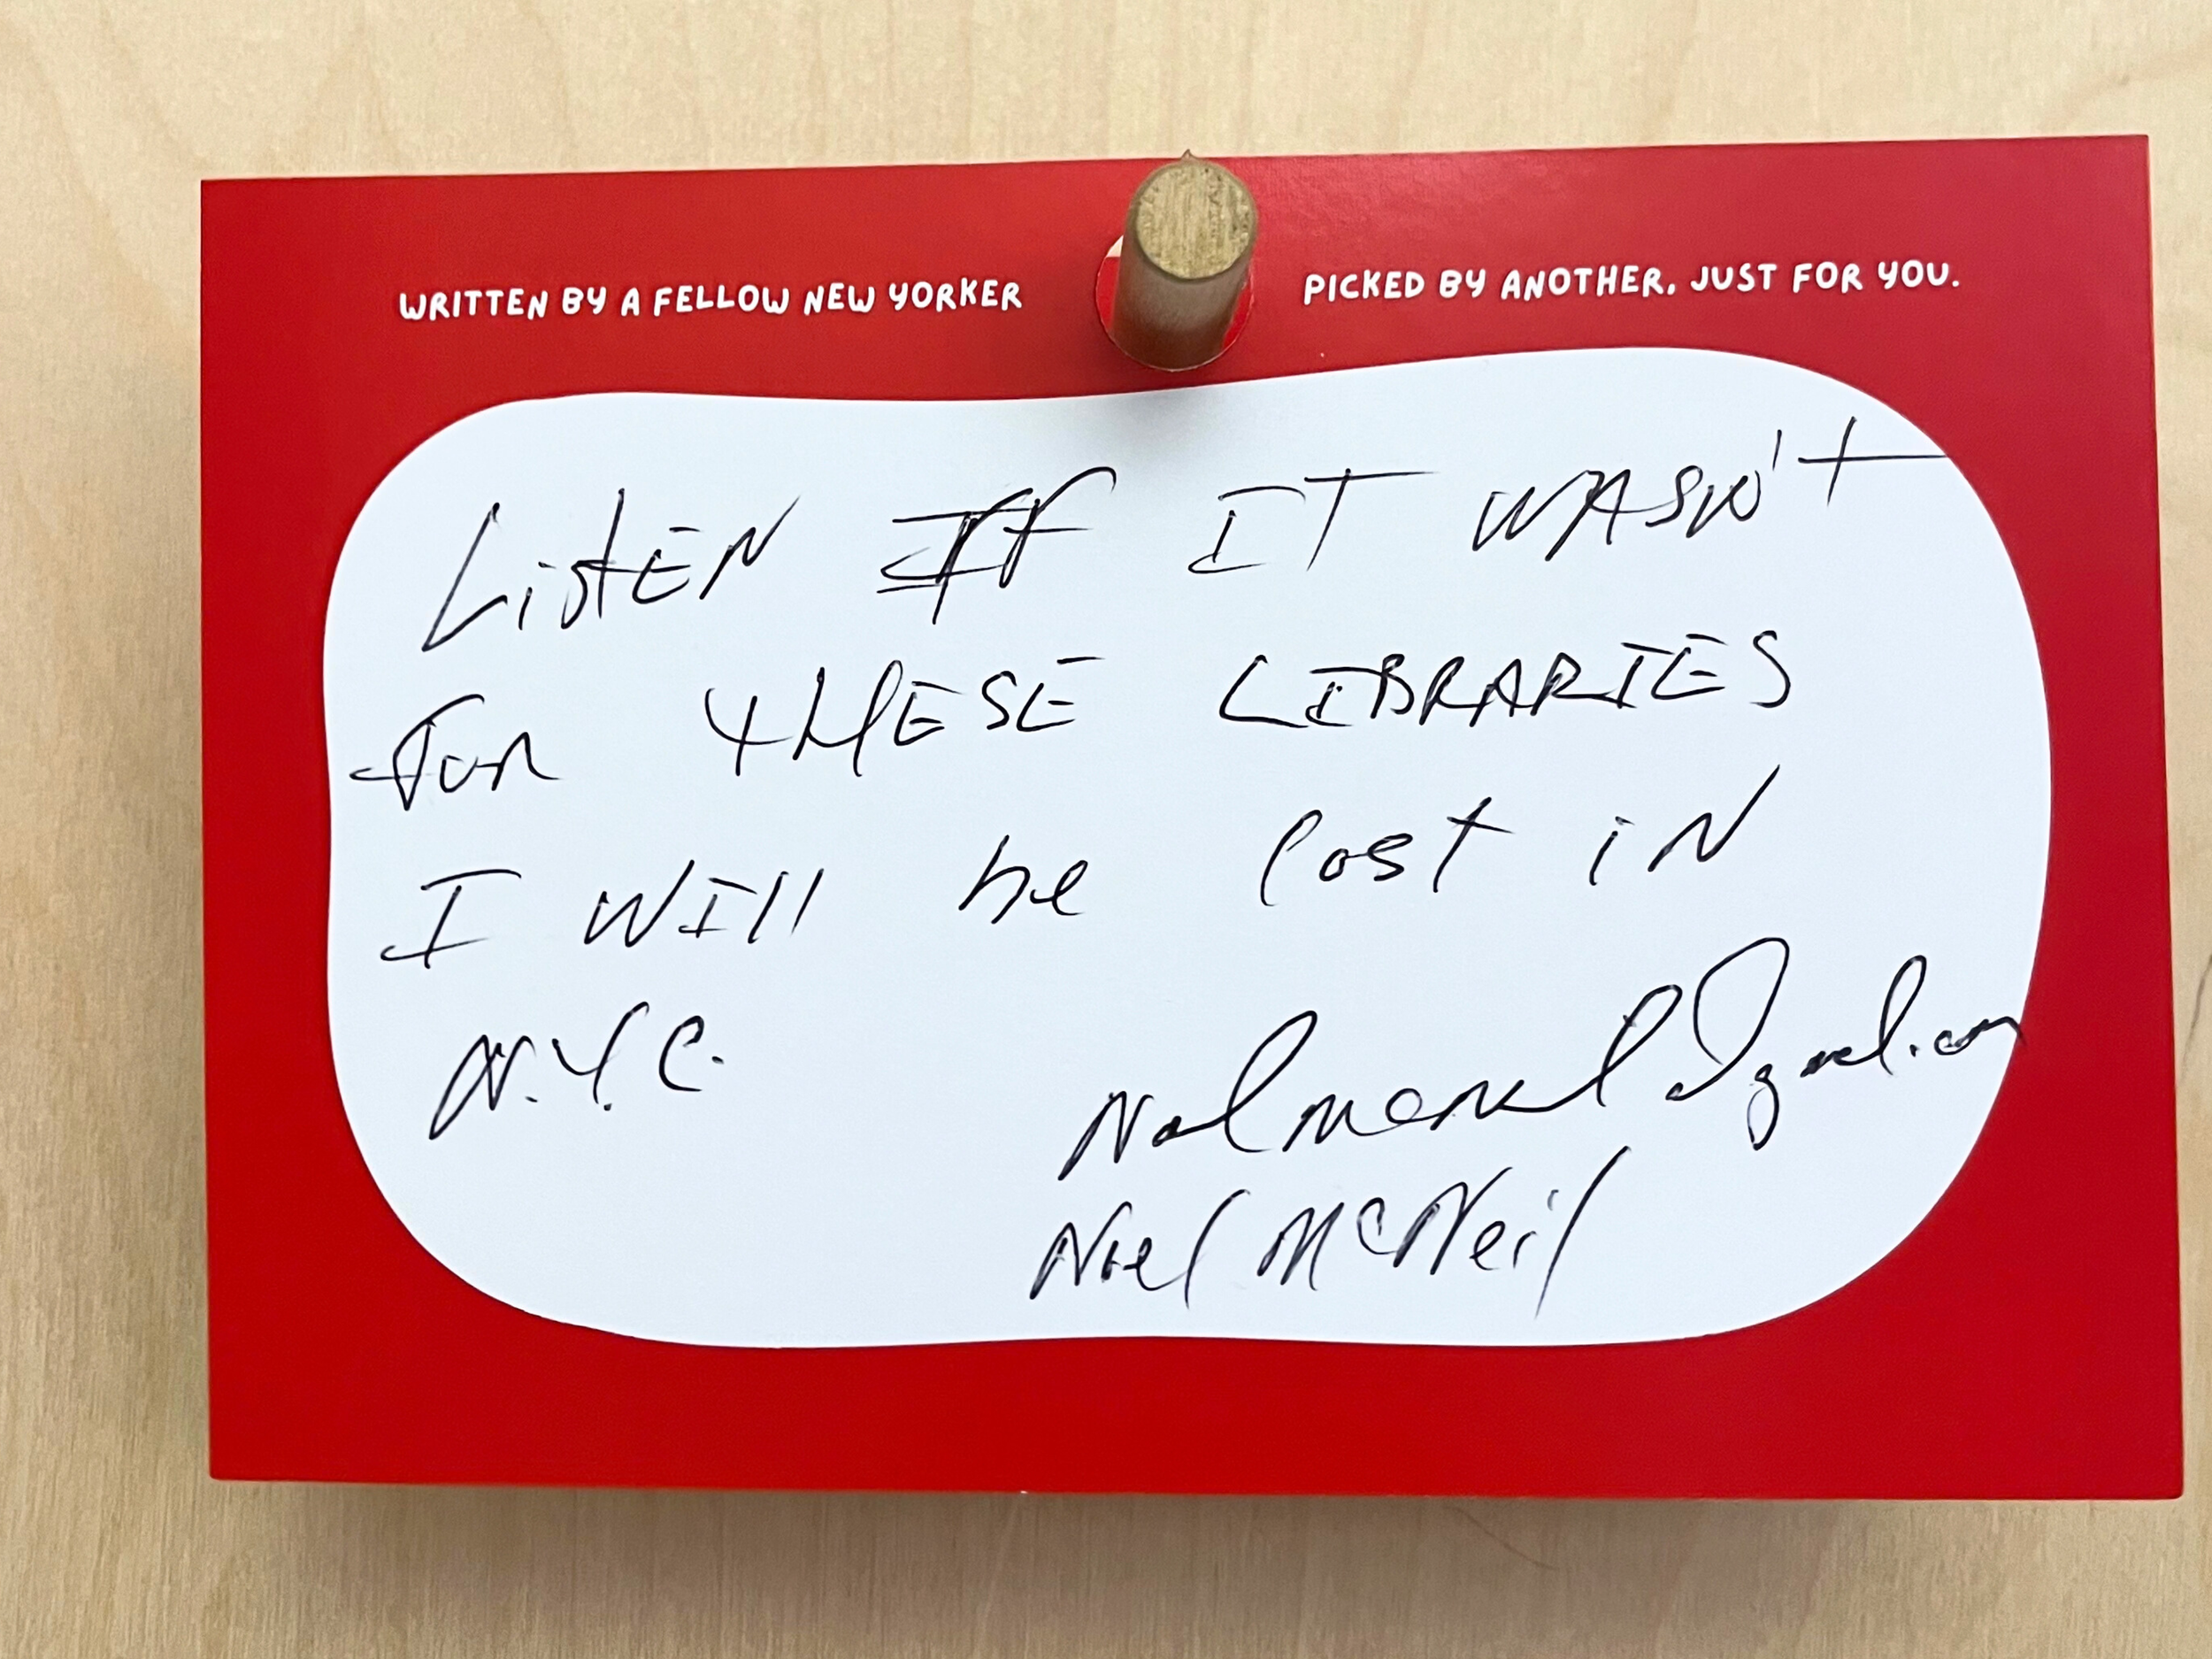 WRITTEN BY A FELLOW NEW YORKER
PICKED BY ANOTHER, JUST FOR YOU.
Listen If IT WASN't
For THESE LIBRARIES
I Will be lost in
N.Y.C.
Noel McNeil